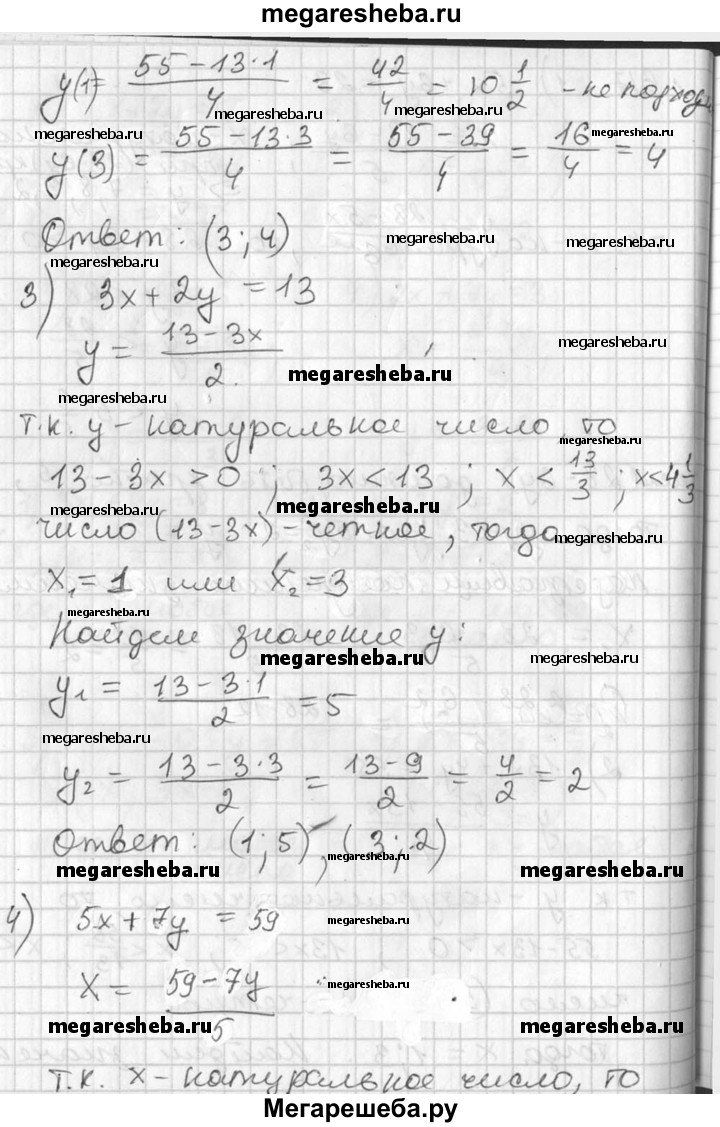 megaresheba.ru
y(1)= (55-13·1)/4 = 42/4 = 10 1/2 - не подход
megaresheba.ru megaresheba.ru
megaresheba.ru megaresheba.ru
y(3) = (55-13·3)/4 = (55-39)/4 = 16/4 = 4
Ответ: (3; 4)
megaresheba.ru megaresheba.ru megaresheba.ru
3) 3x+2y = 13
y = (13-3x)/2
megaresheba.ru
megaresheba.ru megaresheba.ru
т.к. y - натуральное число, то
megaresheba.ru
13-3x > 0 ; 3x < 13 ; x < 13/3 ; x < 4 1/3
megaresheba.ru megaresheba.ru
число (13-3x) - четное, тогда
megaresheba.ru
x₁ = 1 или x₂ = 3
megaresheba.ru
Найдем значение y:
megaresheba.ru megaresheba.ru
y₁ = (13-3·1)/2 = 5
megaresheba.ru megaresheba.ru
y₂ = (13-3·3)/2 = (13-9)/2 = 4/2 = 2
Ответ: (1; 5), (3; 2)
megaresheba.ru megaresheba.ru megaresheba.ru
4) 5x+7y = 59
megaresheba.ru
x = (59-7y)/5
megaresheba.ru
megaresheba.ru megaresheba.ru
т.к. x - натуральное число, то
Мегарешеба.ру